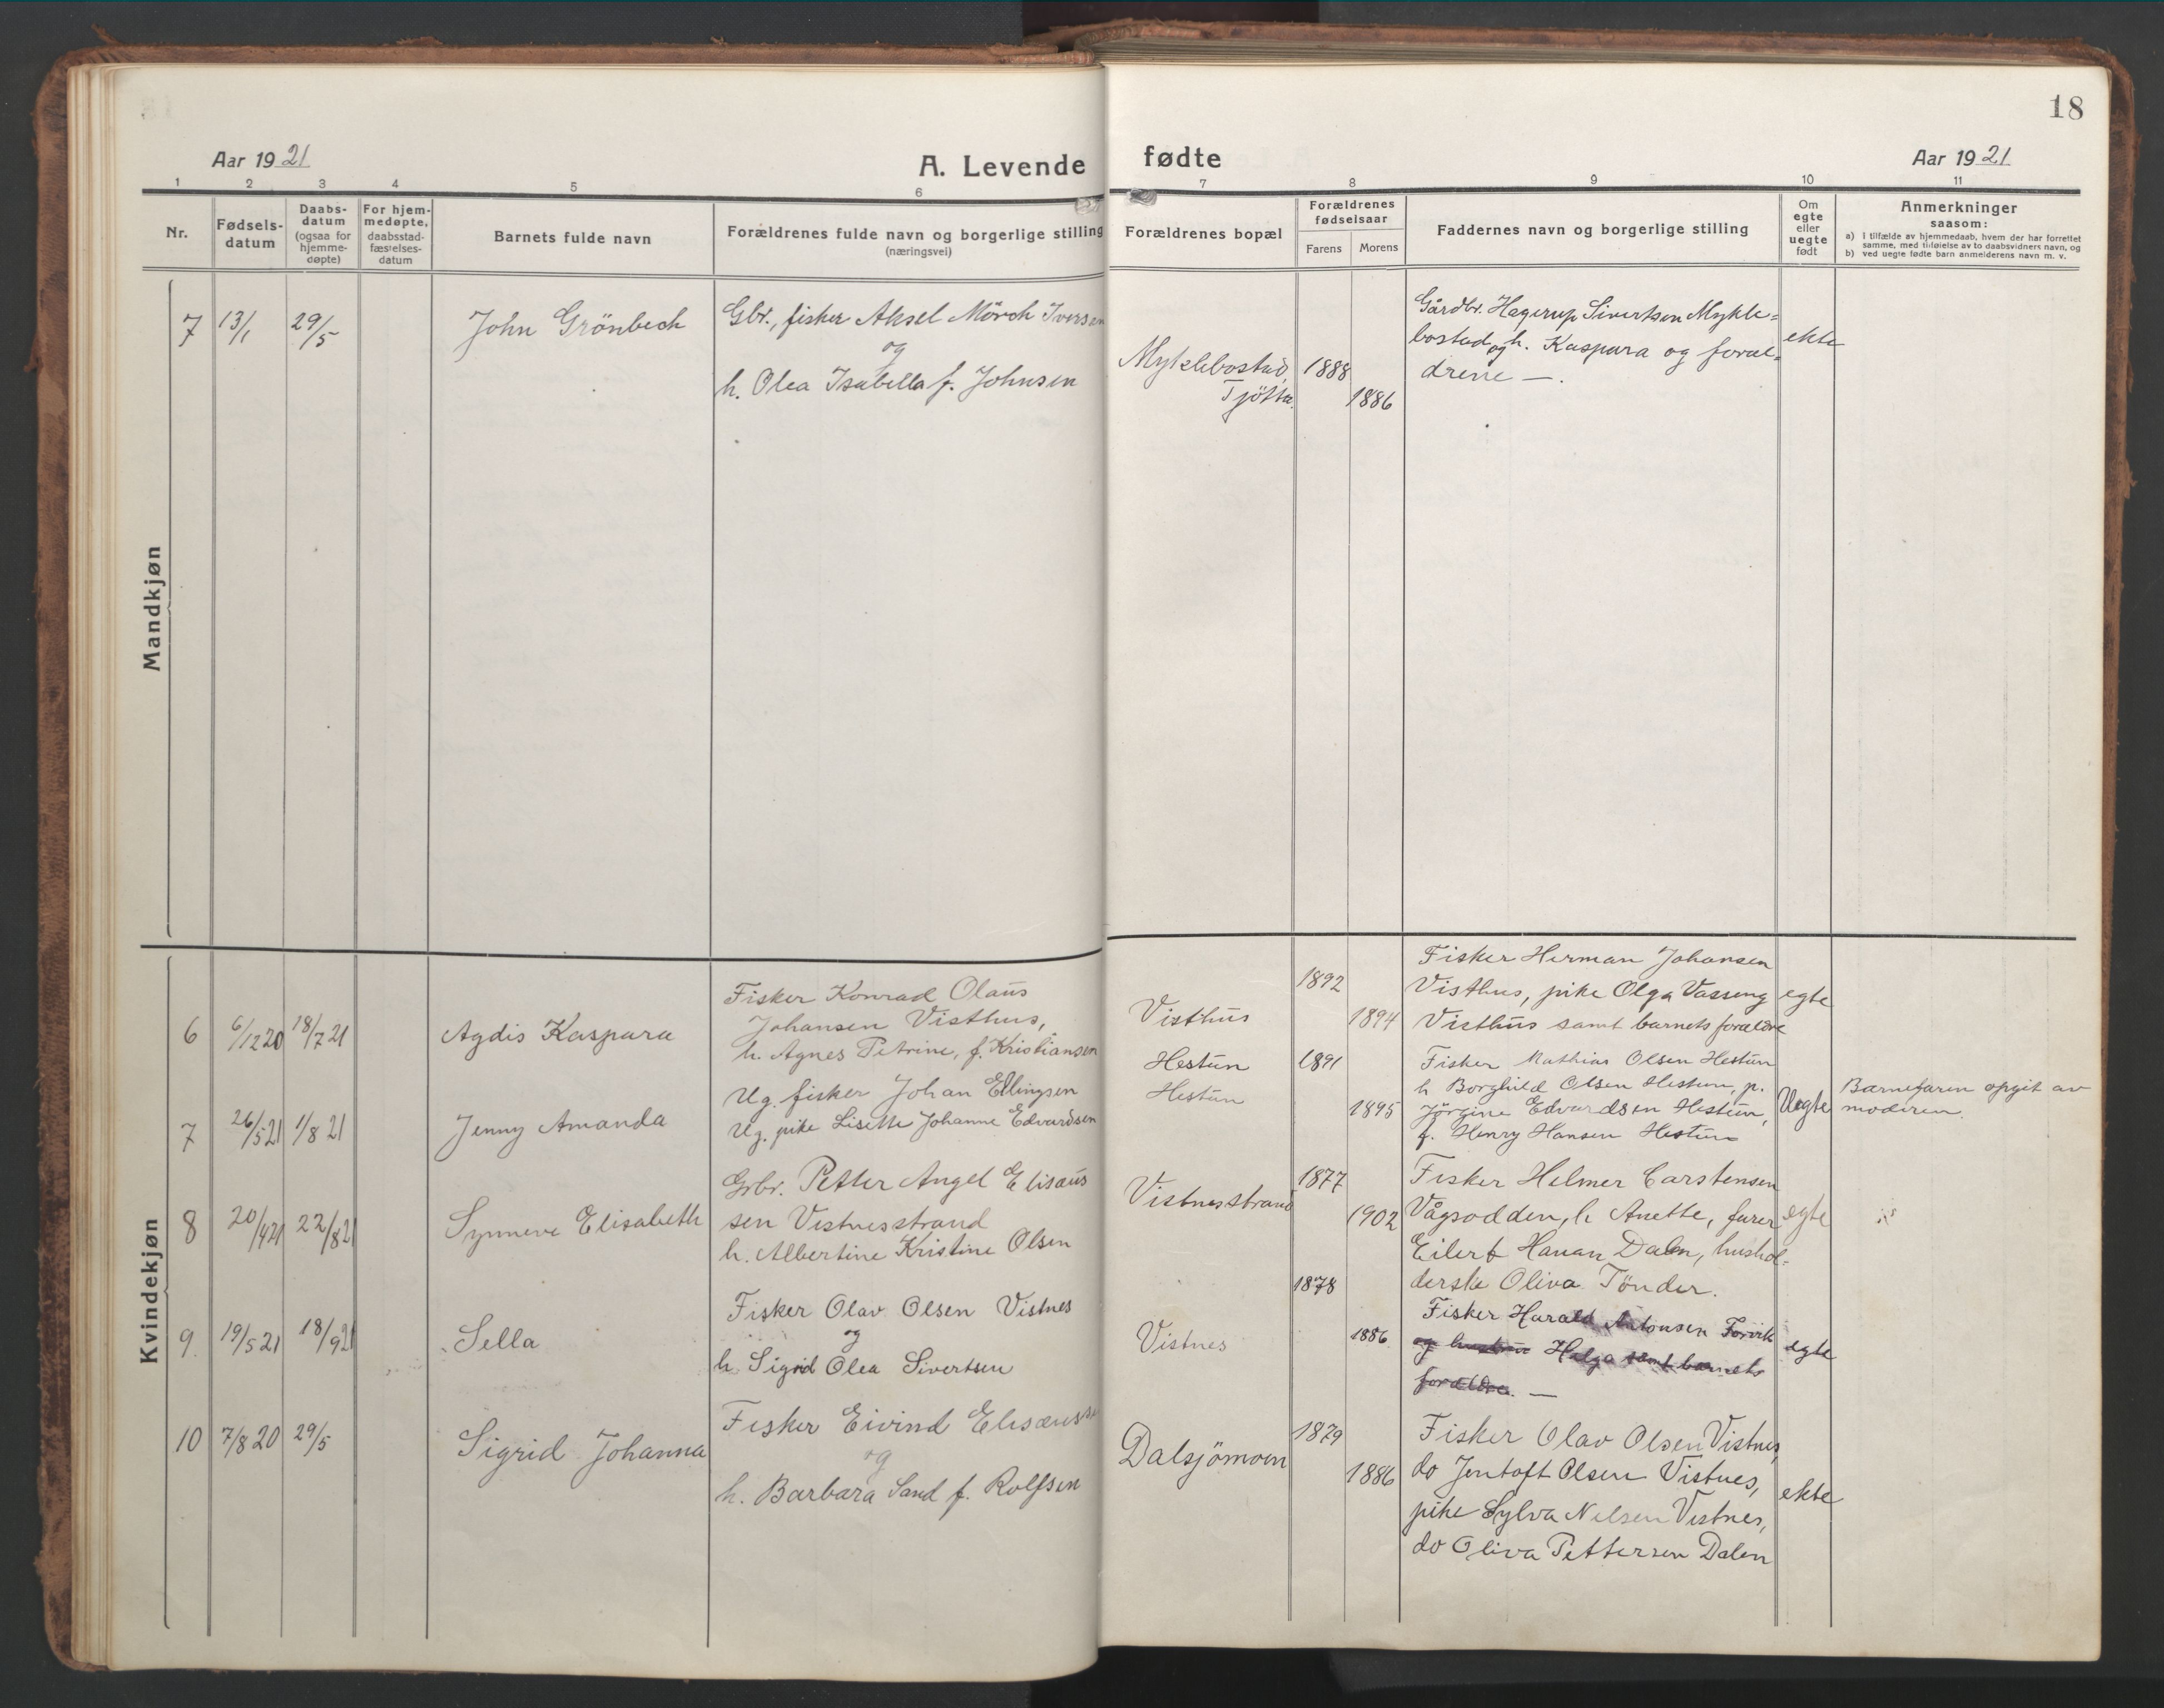 18
Aar 1921
A. Levende fødte
Aar 1921
1 2 3 4 5 6 7 8 9 10 11
Nr.
Fødsels-
datum
Daabs-
datum
(ogsaa for
hjemme-
døpte)
For hjem-
medøpte,
daabsstad-
fæstelses-
datum
Barnets fulde navn
Forældrenes fulde navn og borgerlige stilling
(næringsvei)
Forældrenes bopæl
Forældrenes
fødselsaar
Farens Morens
Faddernes navn og borgerlige stilling
Om
egte
eller
uegte
født
Anmerkninger
saasom:
a) I tilfælde av hjemmedaab, hvem der har forrettet
samme, med tilføielse av to daabsvidners navn, og
b) ved uegte fødte barn anmelderens navn m. v.
Mandkjøn
7 13/1 29/5
John Grönbech
Gbr., fisker Aksel Mörch Iversen
og
h. Olea Isabella f. Johnsen
Myklebostad,
Tjötta.
1888
1886
Gårdbr. Hagerup Sivertsen Mykle=
bostad, og h. Kaspara og foræl=
drene —.
ekte
Kvindekjøn
6 6/12 20 18/7 21
Agdis Kaspara
Fisker Konrad Olaus
Johansen Visthus,
h. Agnes Petrine, f. Kristiansen
Visthus
1892
1894
Fisker Herman Johansen
Visthus, pike Olga Vasseng
Visthus samt barnets forældre
egte
7 26/5 21 1/8 21
Jenny Amanda
Ug. fisker Johan Ellingsen
Ug. pike Lisette Johanne Edvardsen
Hestun
Hestun
1891
1895
Fisker Mathias Olsen Hestun
h Borghild Olsen Hestun, p.
Jörgine Edvardsen Hestun,
f. Henry Hansen Hestun
Uegte
Barnefaren opgit av
moderen.
8 20/4 21 22/8 21
Synneve Elisabeth
Grbr. Petter Angel Elisæus
sen Vistnesstrand
h. Albertine Kristine Olsen
Vistnesstrand
1877
1902
Fisker Helmer Carstensen
Vågsodden, h Anette, furer
Eilert Hanan Dalen, hushol-
derske Oliva Tönder.
egte
9. 19/5 21 18/9 21
Sella
Fisker Olav Olsen Vistnes
og
h. Sigrid Olea Sivertsen
Vistnes
1878
1886
Fisker Harald Antonsen Forvik
og hustru Helga samt barnets
forældre. —
egte
10 7/8 20 29/5
Sigrid Johanna
Fisker Eivind Elisæussen
og
h. Barbara Sand f. Rolfsen
Dalsjömoen
1879
1886
Fisker Olav Olsen Vistnes,
do Jentoft Olsen Vistnes,
pike Sylva Nelsen Vistnes,
do Oliva Pettersen Dalen
ekte